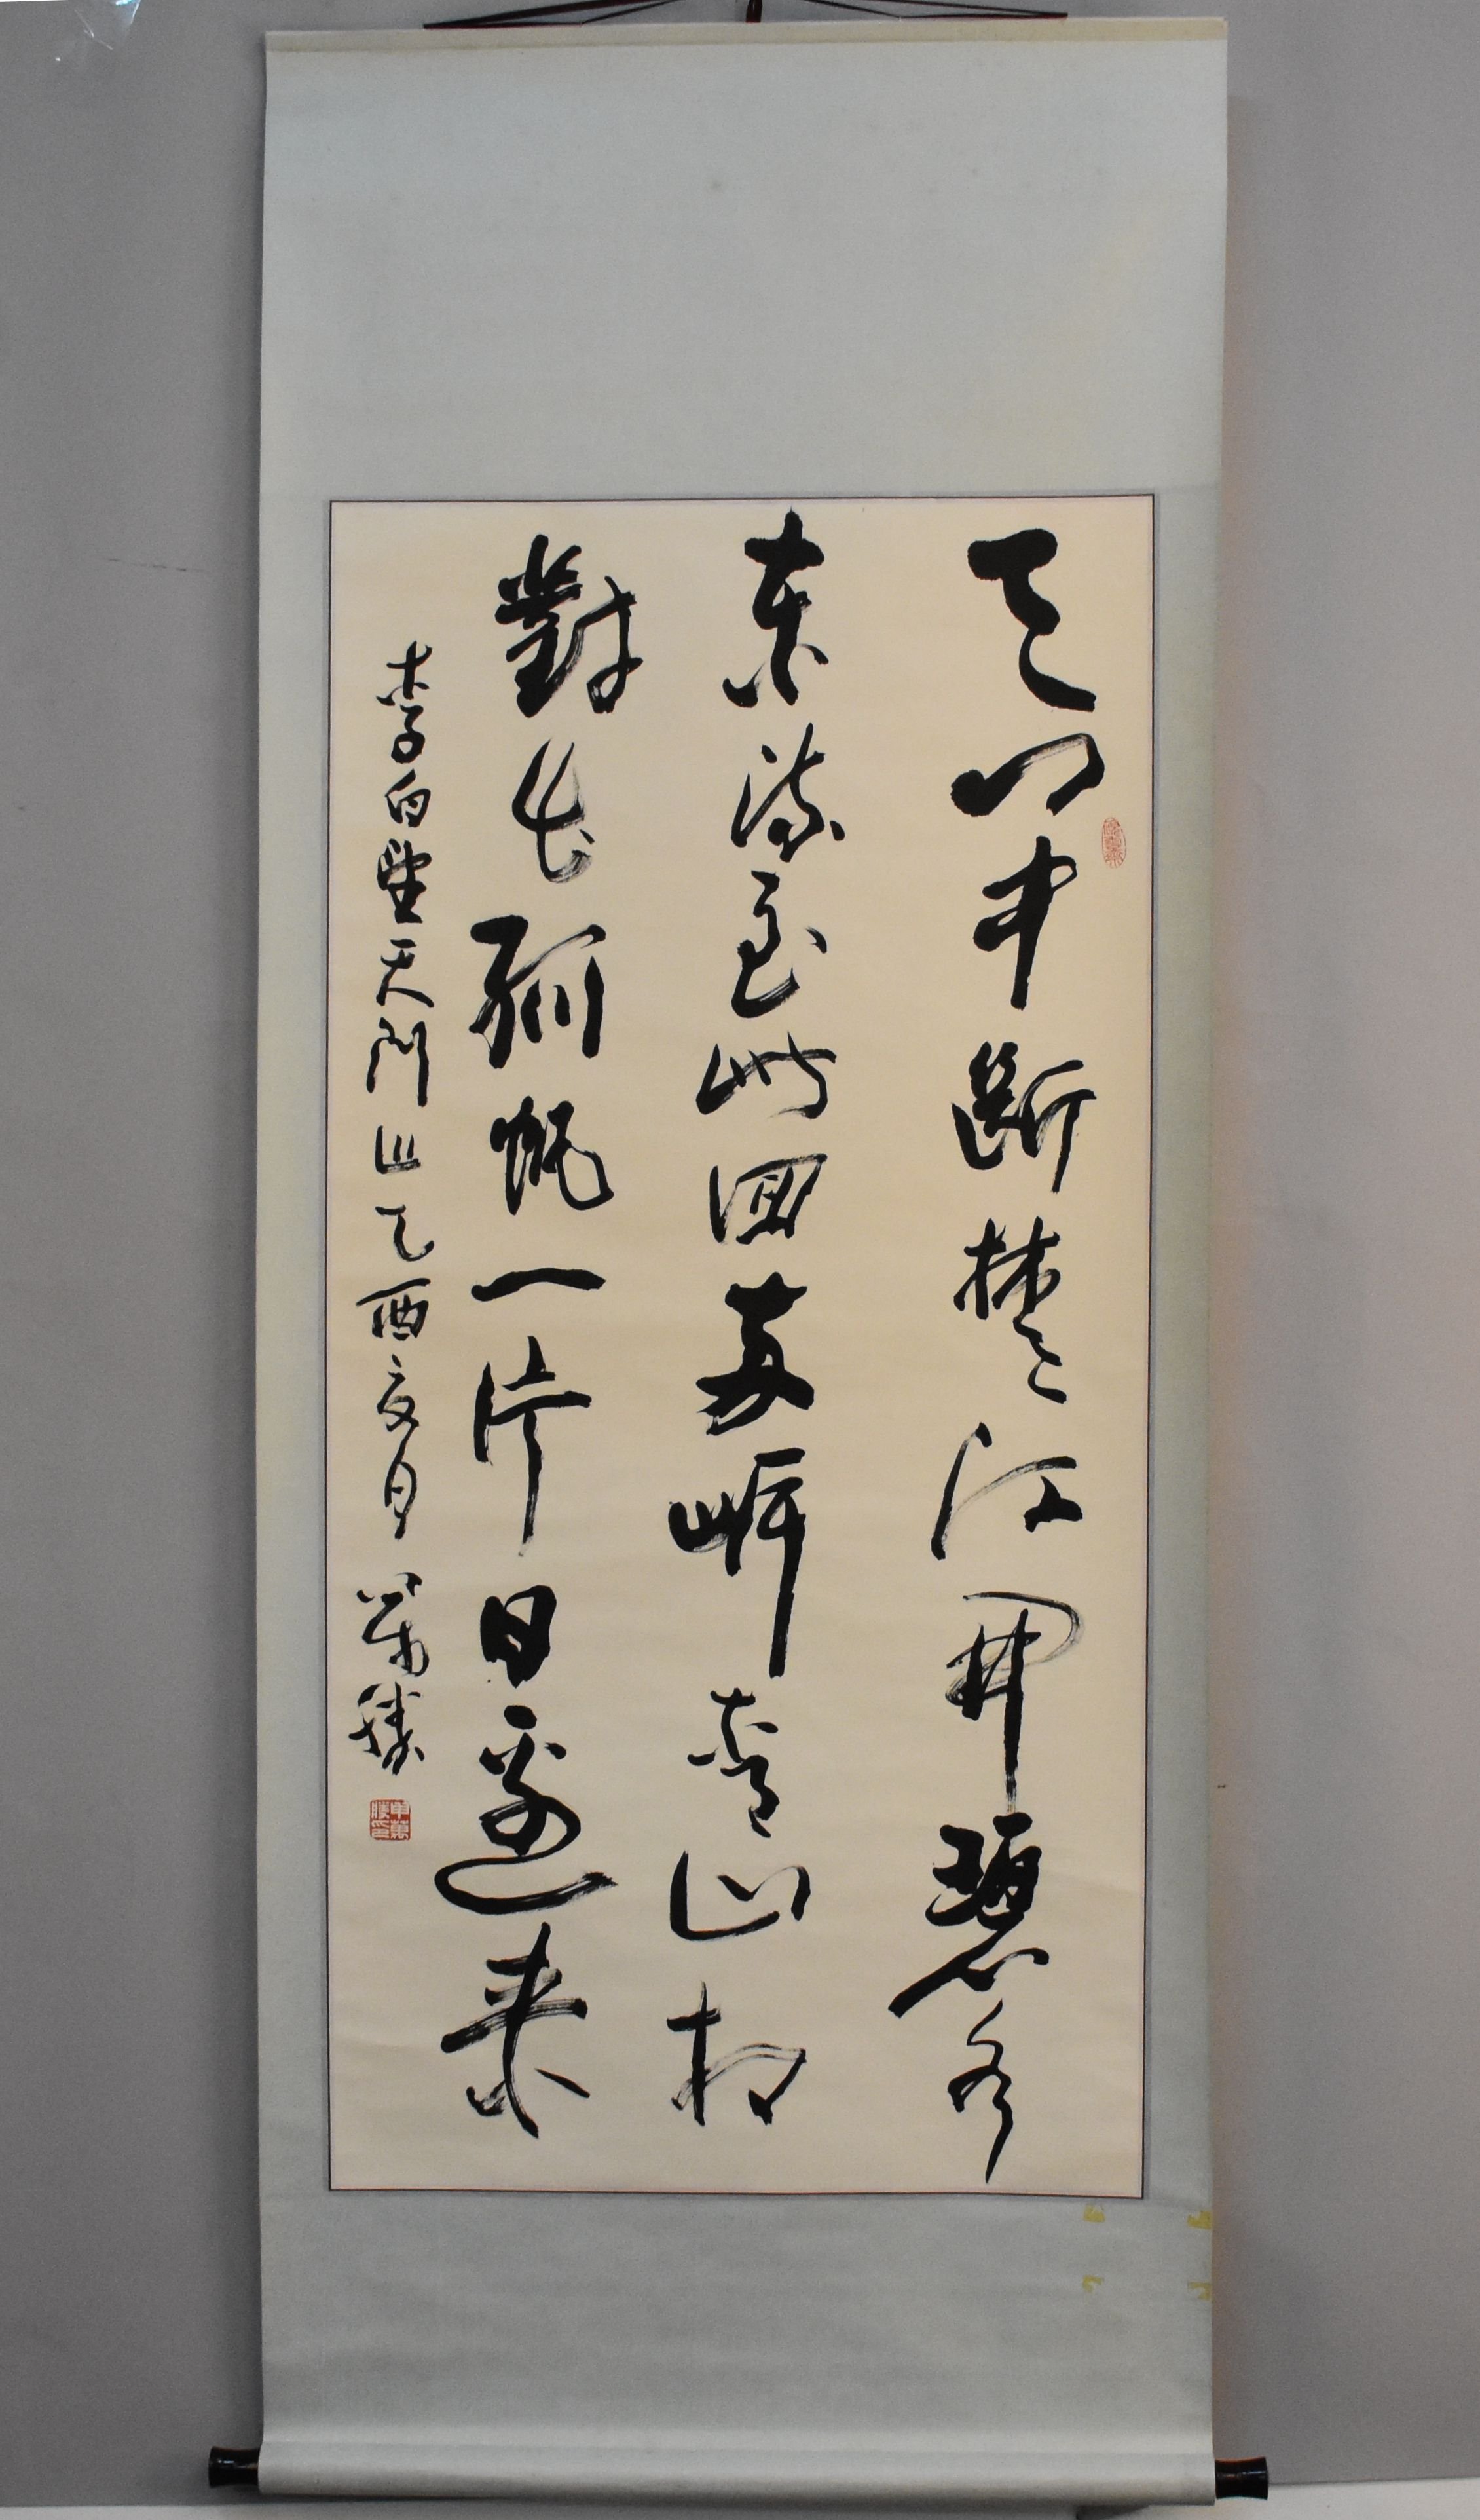 天門中斷楚江開碧水
東流至此回兩岸青山相
對出孤帆一片日邊来
李白望天門山乙酉夏月萬勝
申萬勝印